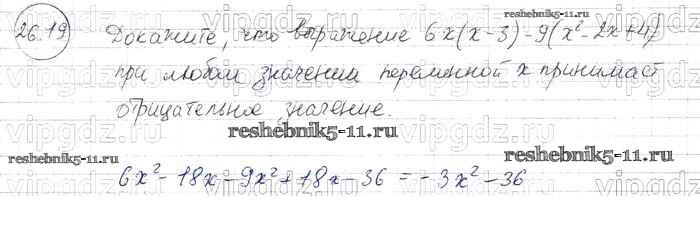 26.19 Докажите, что выражение 6x(x-3)-9(x²-2x+4)
при любом значении переменной x принимает
отрицательное значение.
6x²-18x-9x²+18x-36=-3x²-36
reshebnik5-11.ru
reshebnik5-11.ru
reshebnik5-11.ru
reshebnik5-11.ru
vipgdz.ru vipgdz.ru vipgdz.ru